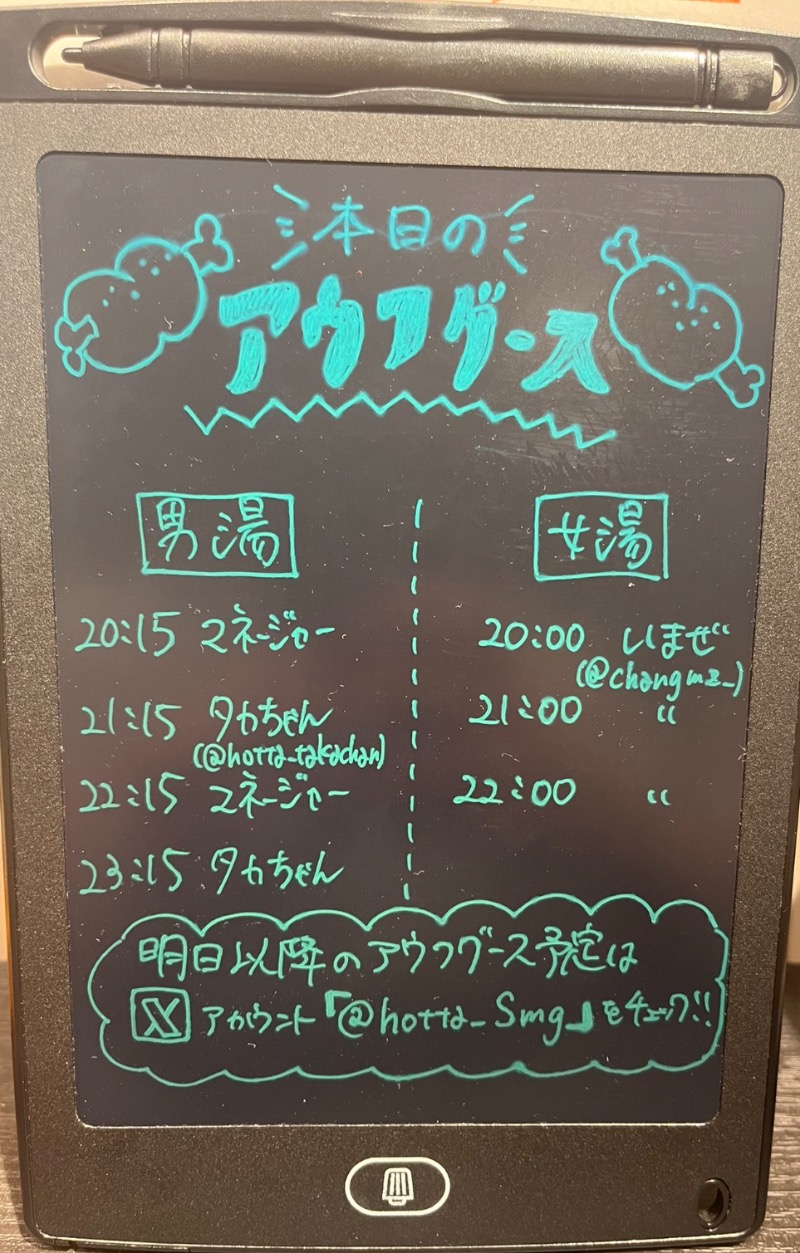 本日の
アウフグース
男湯
20:15 マネージャー
21:15 タカちゃん
(@hotta_takachan)
22:15 マネージャー
23:15 タカちゃん
女湯
20:00 いまぜ
(@changmz_)
21:00 〃
22:00 〃
明日以降のアウフグース予定は
X アカウント『@hotta_Smg』をチェック!!